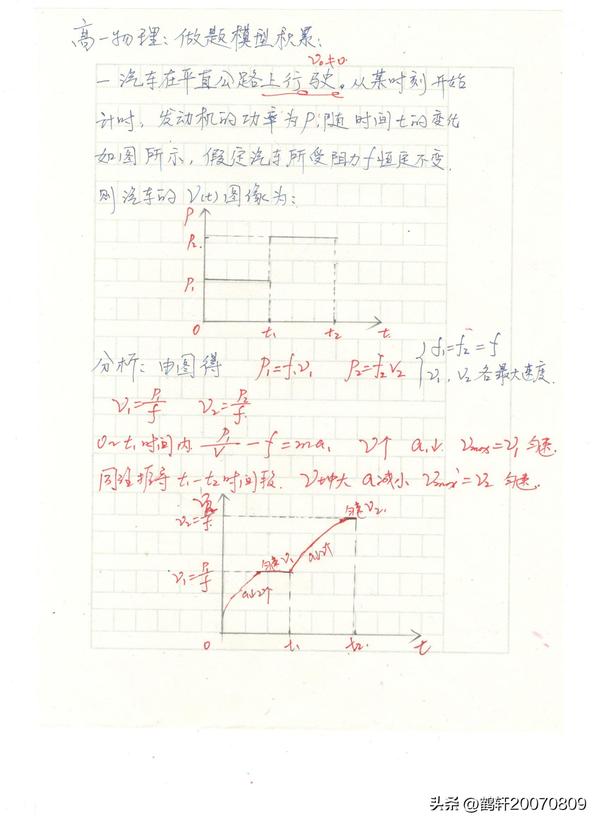 高一物理：做题模型积累：
v₀≠0
一汽车在平直公路上行驶。从某时刻开始
计时，发动机的功率为P，随时间t的变化
如图所示，假定汽车所受阻力f恒定不变，
则汽车的v(t)图像为：
P
P₂
P₁
0 t₁ t₂ t
分析：由图得 P₁=f₁v₁ P₂=f₂v₂ { f₁=f₂=f
v₁，v₂各最大速度.
v₁=P₁/f v₂=P₂/f
0~t₁时间内 P₁/v-f=ma, v↑ a↓ vmax=v₁ 匀速.
同理推导t₁-t₂时间段. v增大 a减小 v'max=v₂ 匀速.
v₂=P₂/f 匀速v₂
v₁=P₁/f 匀速v₁ a↓v↑
a↓v↑
0 t₁ t₂ t
头条 @鹤轩20070809